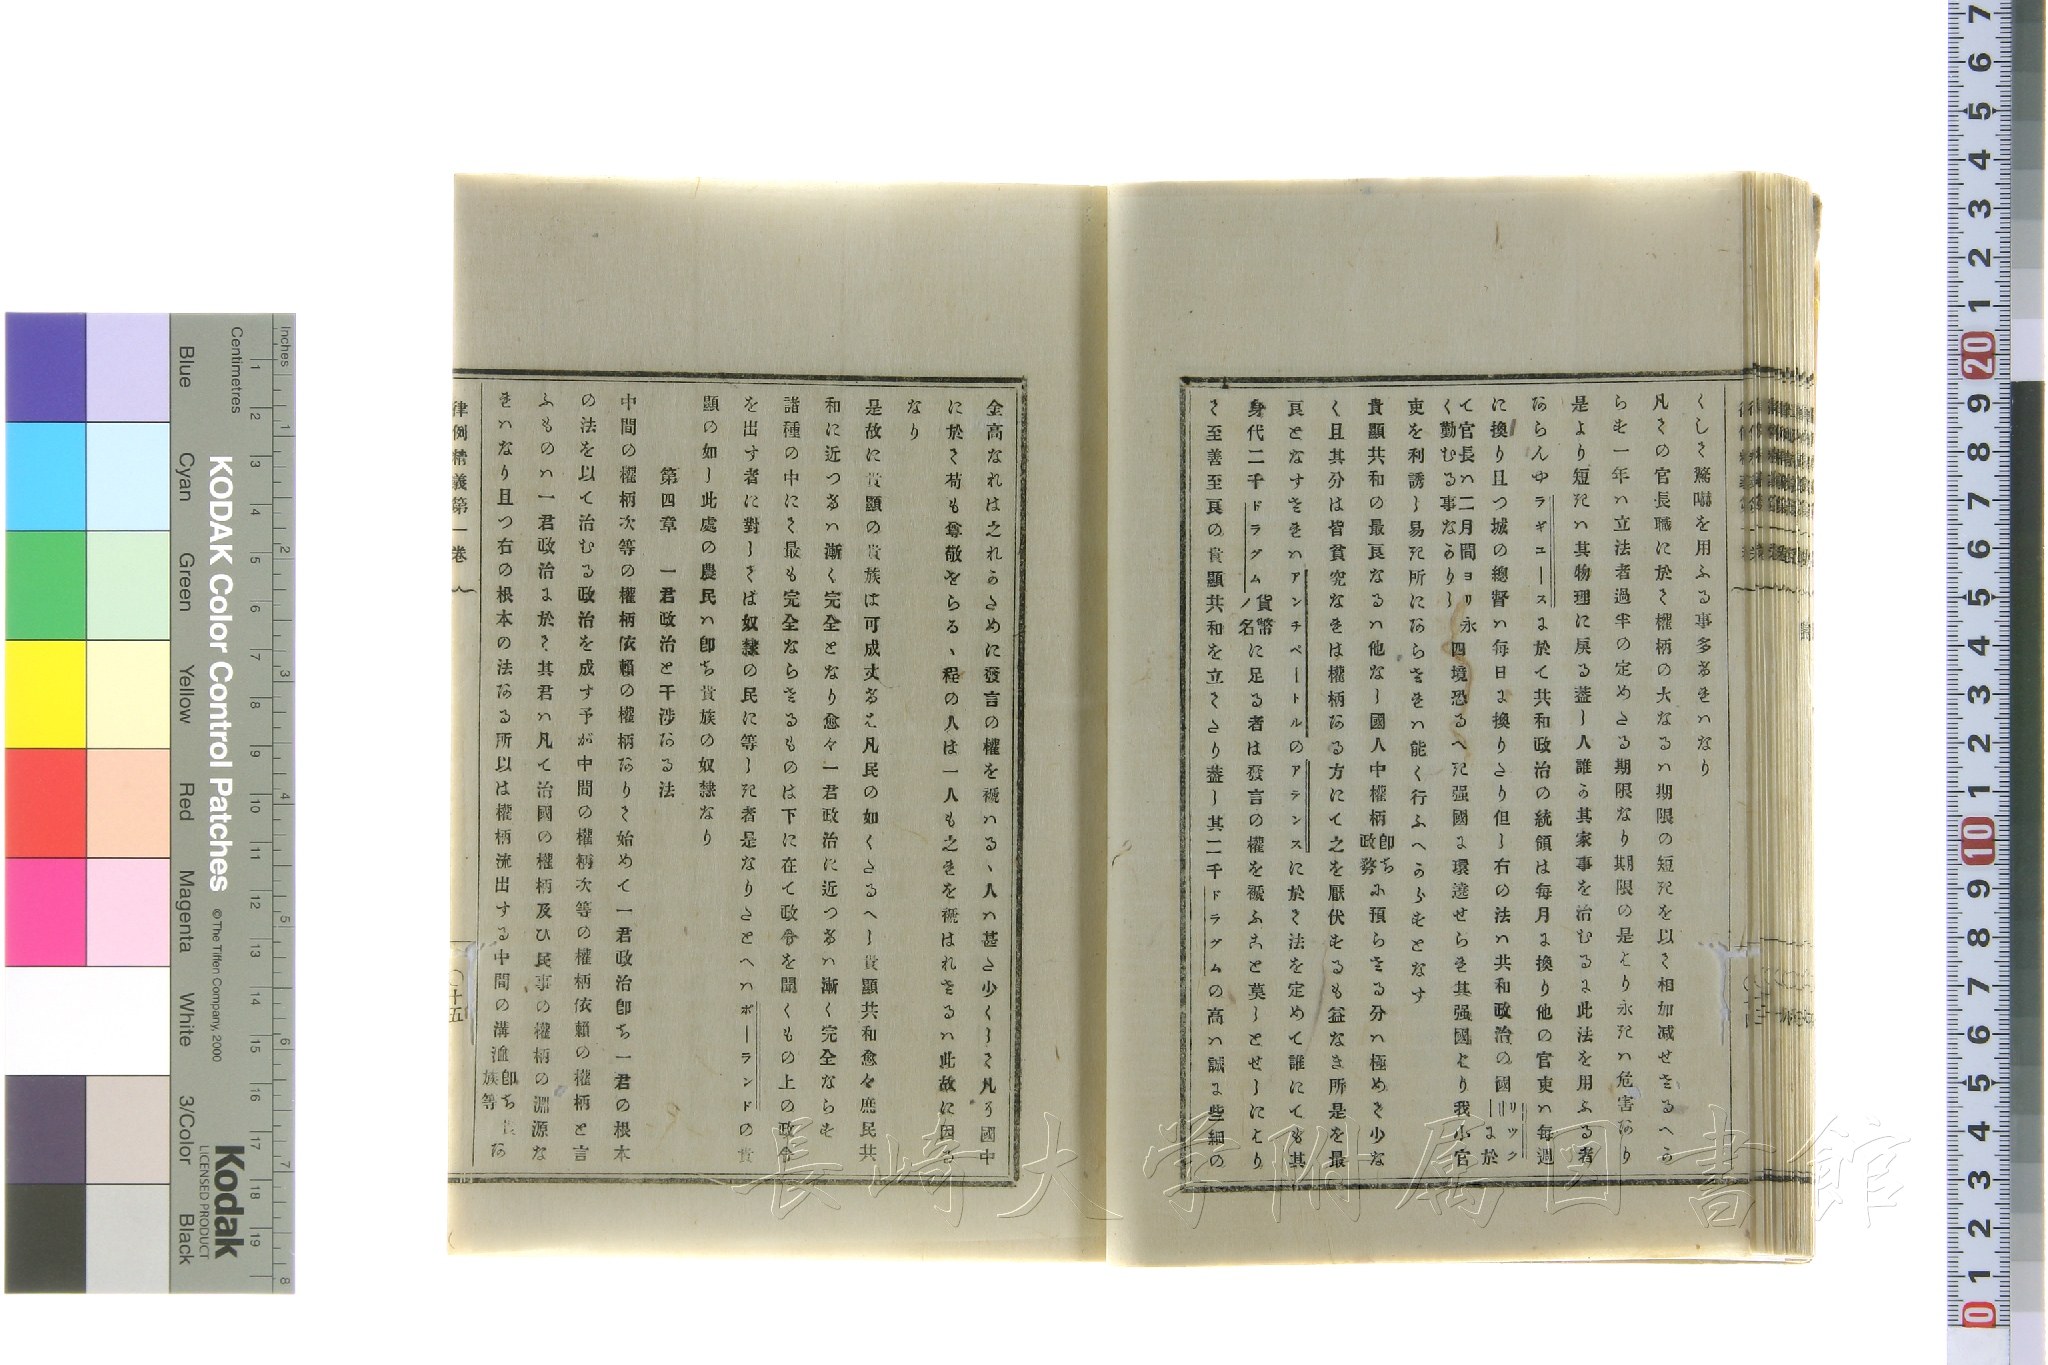 くして驚嚇を用ふる事多きをいなり
凡ての官長職に於て權柄の大なるハ期限の短きを以て相加减せさるへら
らす一年ハ立法者過半の定めさる期限なり期限の是より永きハ危害なり
是より短きハ其物理に戾る蓋し人誰か其家事を治むるに此法を用ふる者
あらんやラギユースに於て共和政治の統領は毎月に換り他の官吏ハ毎週
に換り且つ城の總督ハ毎日に換りたり但し右の法ハ共和政治の國リツクに於
て官長ハ二月間ヨリ永く勤むる事なかりし四境恐るへき强國に環遶せられ其强國より我小官
吏を利誘し易き所にあらされハ能く行ふへからすとなす
貴顯共和の最良なるハ他なし國人中權柄即ち政務に預らさる分ハ極めて少な
く且其分は皆貧究なれは權柄ある方にて之を厭伏するも益なき所是を最
良となすされハアンチペートルのアランスに於て法を定めて誰にても其
身代二千ドラグム貨幣ノ名に足る者は發言の權を襪ふこと莫しとせしにより
て至善至良の貴顯共和を立てたり蓋し其二千ドラグムの高ハ誠に些細の
金高なれは之れかために發言の權を襪ハるゝ人ハ甚た少くして凡そ國中
に於て苟も尊敬をらるゝ程の人は一人も之れを襪はれさるハ此故に因る
なり
是故に貴顯の貴族は可成丈るえ凡民の如くたるへし貴顯共和愈々庶民共
和に近つるハ漸く完全となり愈々一君政治に近つるハ漸く完全ならす
諸種の中にて最も完全ならさるものは下に在て政令を聞くもの上の政令
を出す者に對しては奴隷の民に等しき者是なりたとへハポーランドの貴
顯の如し此處の農民ハ即ち貴族の奴隷なり
第四章 一君政治と干渉ある法
中間の權柄次等の權柄依賴の權柄ありて始めて一君政治即ち一君の根本
の法を以て治むる政治を成す予が中間の權柄次等の權柄依賴の權柄と言
ふものハ一君政治に於て其君ハ凡て治國の權柄及ひ民事の權柄の淵源な
れハなり且つ右の根本の法ある所以は權柄流出する中間の溝洫即ち貴族等あ
律例精義第一卷
十五
長崎大学附属図書館
KODAK Color Control Patches
© The Tiffen Company, 2000
Kodak
LICENSED PRODUCT
Inches
Centimetres
Blue
Cyan
Green
Yellow
Red
Magenta
White
3/Color
Black